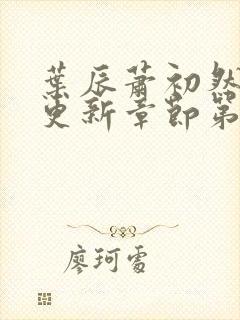 葉辰蕭初然
更新章節第
廖珂雪